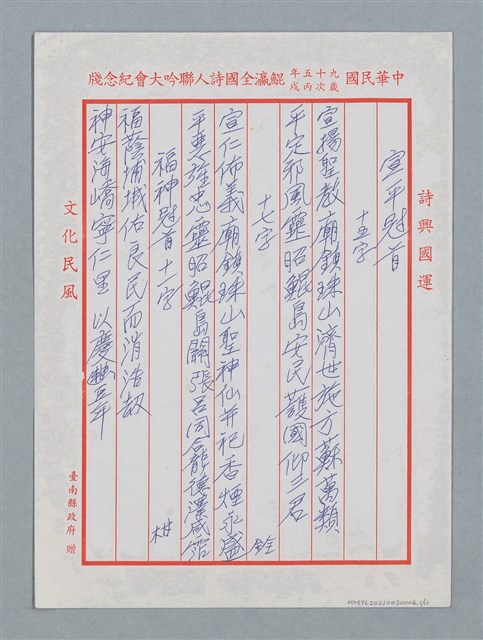 中華民國九十五年歲次丙戌鯤瀛全國詩人聯吟大會紀念牋
詩興國運
宣平冠首
十五字
宣揚聖教廟鎮珠山濟世施方蘇萬類
平定邪風靈昭鯤島安民護國仰三君
十七字
宣仁佈義廟鎮珠山聖神仙并祀香煙永盛
平奧強忠靈昭鯤島關張呂同龕德澤咸霑
福神冠首十一字
福蔭埔城佑良民而消浩劫
神安海嶠寧仁里以慶豐年
文化民風
臺南縣政府 贈